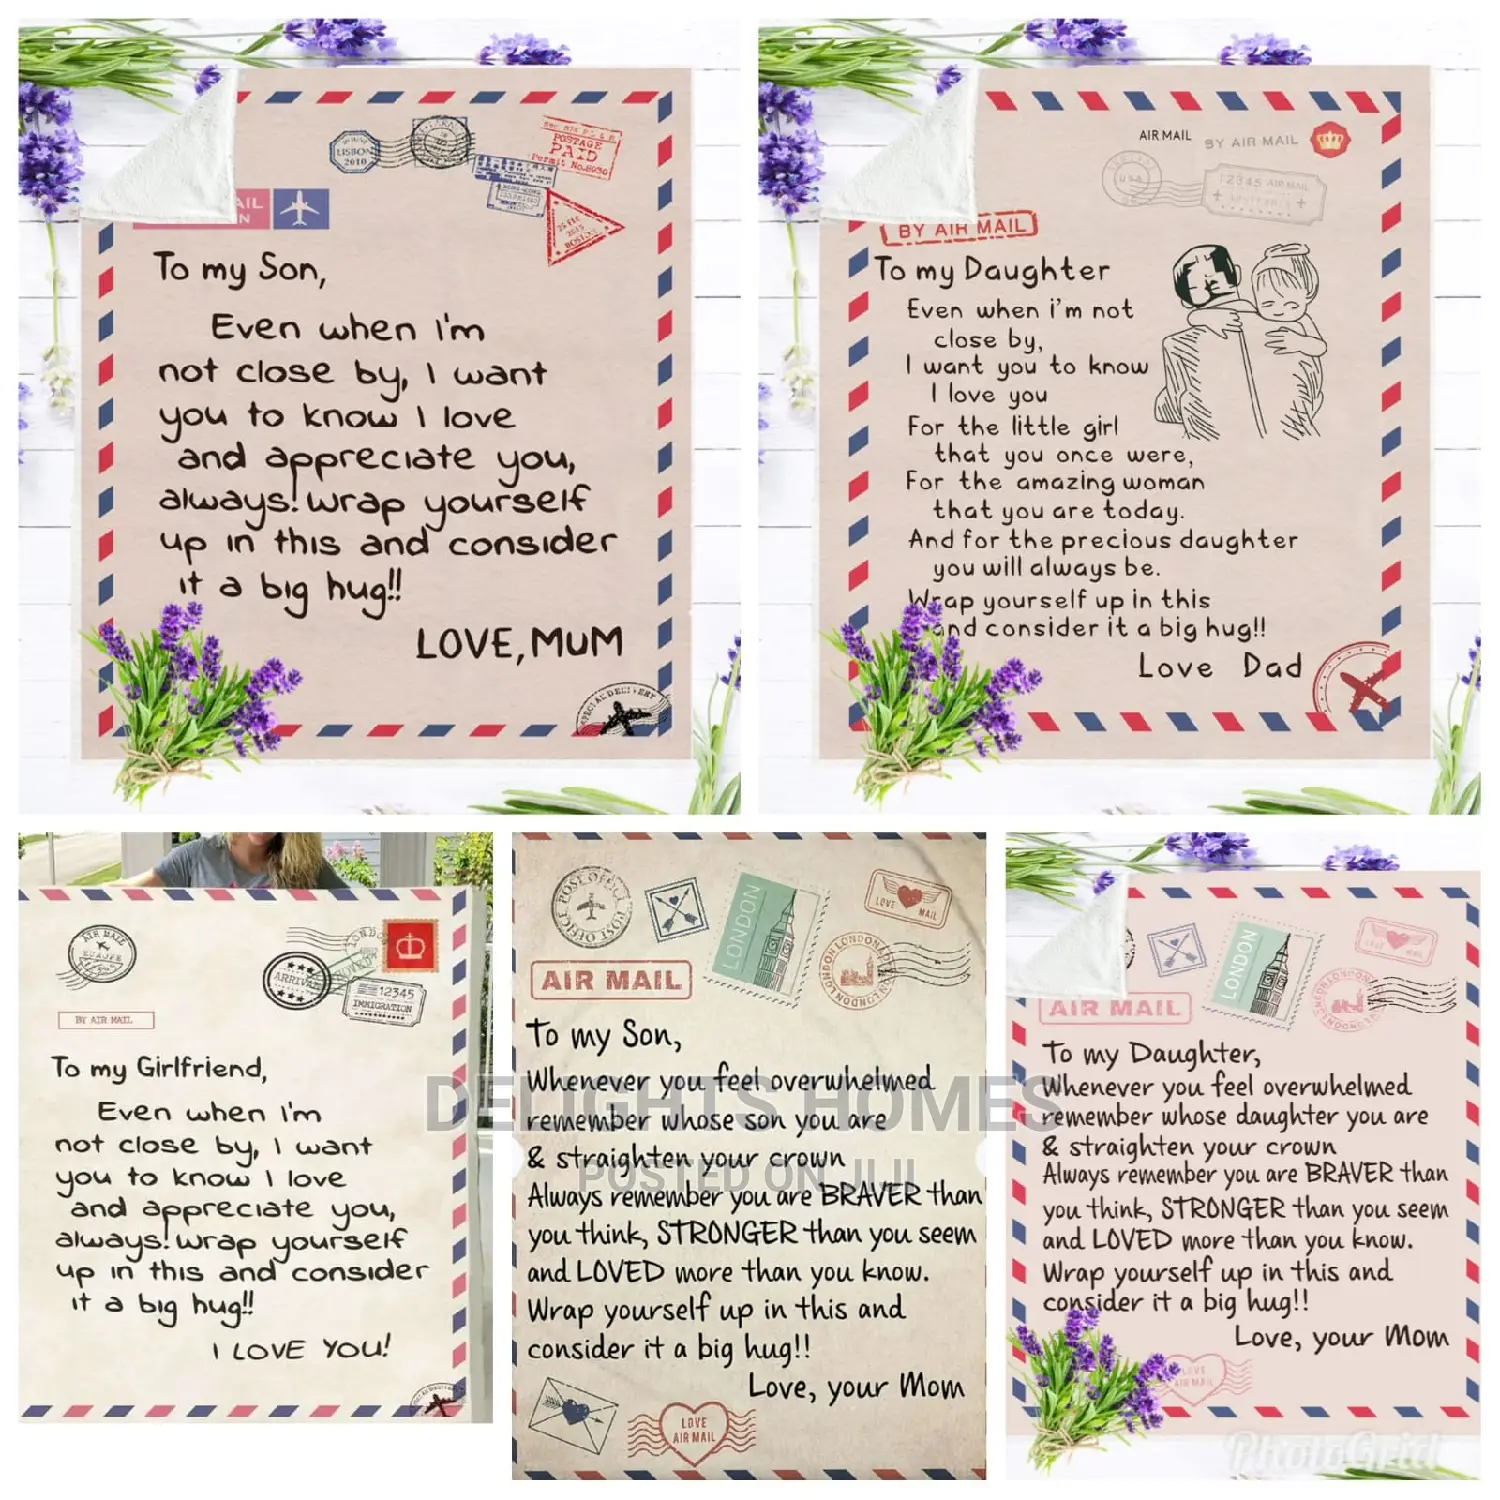 LISBON
2010
POSTAGE
PAID
Permit No.8030
AIL
N
BOSTON
To my Son,
Even when I'm
not close by, I want
you to know I love
and appreciate you,
always! wrap yourself
up in this and consider
it a big hug!!
LOVE, MUM
SPECIAL DELIVERY
AIR MAIL
BY AIR MAIL
U.S.A
12345 AIR MAIL
BY AIR MAIL
To my Daughter
Even when i'm not
close by,
I want you to know
I love you
For the little girl
that you once were,
For the amazing woman
that you are today.
And for the precious daughter
you will always be.
Wrap yourself up in this
and consider it a big hug!!
Love Dad
AIR MAIL
LONDON
ARRIVAL
12345
IMMIGRATION
BY AIR MAIL
To my Girlfriend,
Even when I'm
not close by, I want
you to know I love
and appreciate you,
always! wrap yourself
up in this and consider
it a big hug!!
I LOVE YOU!
POST OFFICE POST OFFICE
LONDON
LOVE MAIL
LONDON LONDON
AIR MAIL
To my Son,
Whenever you feel overwhelmed
remember whose son you are
& straighten your crown
Always remember you are BRAVER than
you think, STRONGER than you seem
and LOVED more than you know.
Wrap yourself up in this and
consider it a big hug!!
Love, your Mom
LOVE
AIR MAIL
LONDON
LOVE MAIL
AIR MAIL
To my Daughter,
Whenever you feel overwhelmed
remember whose daughter you are
& straighten your crown
Always remember you are BRAVER than
you think, STRONGER than you seem
and LOVED more than you know.
Wrap yourself up in this and
consider it a big hug!!
Love, your Mom
LOVE
AIR MAIL
DELIGHTS HOMES
POSTED ON JIJI
PhotoGrid